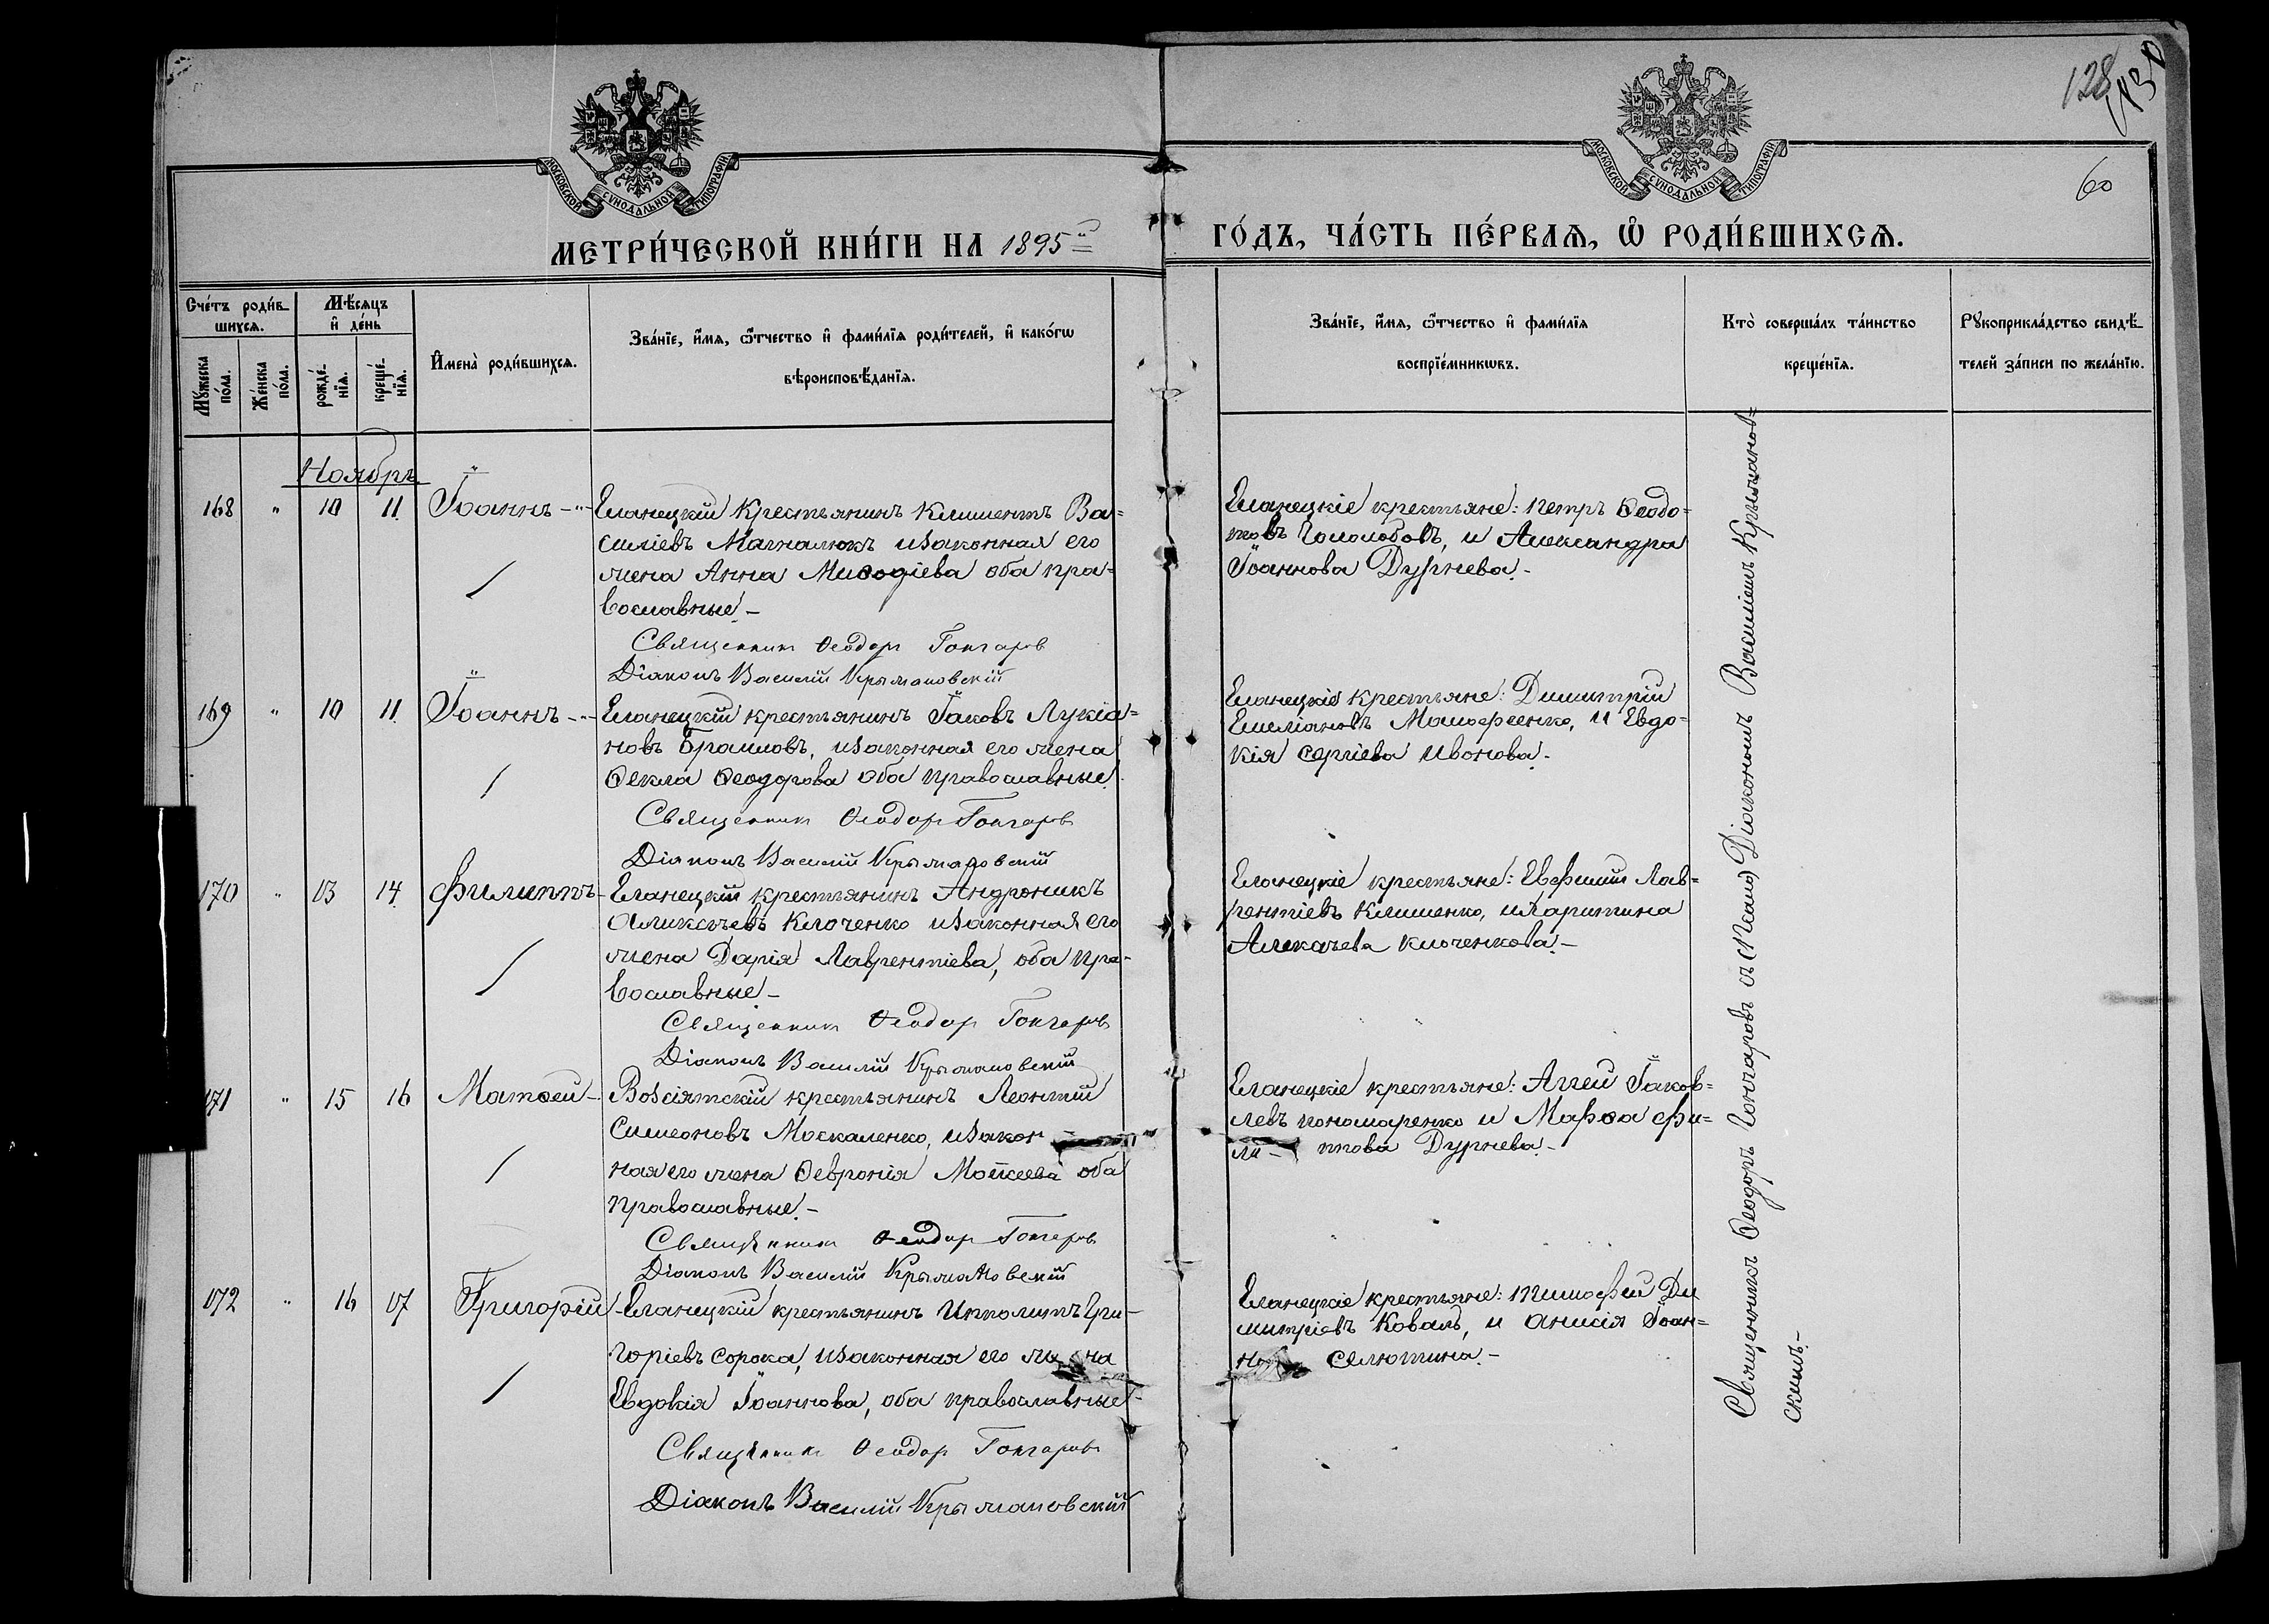 128
130
60
МОСКОВСКОЙ СѴНОДАЛЬНОЙ ТИПОГРАФІИ
МОСКОВСКОЙ СѴНОДАЛЬНОЙ ТИПОГРАФІИ
МЕТРИ́ЧЕСКОЙ КНИ́ГИ НА 1895й ГО́ДЪ, ЧА́СТЬ ПЕ́РВАѦ, Ѡ РОДИ́ВШИХСѦ.
Сче́тъ роди́в-
шихсѧ.
Мꙋжеска по́ла.
Же́нска по́ла.
Мѣ́сѧцъ
и҆ де́нь
рожде́-
нїѧ.
креще́-
нїѧ.
И҆мена̀ роди́вшихсѧ.
Зва́нїе, и҆́мѧ, ѻ҆́тчество и҆ фами́лїѧ роди́телей, и҆ како́гѡ
вѣроисповѣ́данїѧ.
Зва́нїе, и҆́мѧ, ѻ҆́тчество и҆ фами́лїѧ
воспрїе́мникѡвъ.
Кто̀ соверша́лъ та́инство
креще́нїѧ.
Рꙋкоприкла́дство свидѣ́-
телей за́писи по жела́нїю.
Ноябрь
168 " 10 11. Іоаннъ-"-
Еланецкій крестьянинъ Климентъ Ва=
силіевъ Магналюкъ и законная его
жена Анна Миѳодіева оба пра=
вославные.-
Священникъ Ѳеодоръ Гончаровъ
Діаконъ Василій Крыжановскій
Еланецкіе крестьяне: Петръ Ѳеодо=
товъ Гололобовъ, и Александра
Іоаннова Дурнева.-
169 " 10 11. Іоаннъ-"-
Еланецкій крестьянинъ Іаковъ Лукіа=
новъ Браиловъ, и законная его жена
Ѳекла Ѳеодорова оба православные.
Священникъ Ѳеодоръ Гончаровъ
Діаконъ Василій Крыжановскій
Еланецкіе крестьяне: Димитрій
Емеліановъ Малофеенко, и Евдо=
кія Сергіева Ивонова.-
170 " 13 14. Филиппъ-
Еланецкій крестьянинъ Андроникъ
Алексѣевъ Клоченко и законная его
жена Дарія Лаврентіева, оба пра-
вославные.-
Священникъ Ѳеодоръ Гончаровъ
Діаконъ Василій Крыжановскій
Еланецкіе крестьяне: Евфимій Лав=
рентіевъ Клименко, и Харитина
Алексѣева Клоченкова.-
171 " 15 16 Матѳей-
Возсіятскій крестьянинъ Леонтій
Симеоновъ Москаленко, и закон-
ная его жена Ѳевронія Моисеева оба
православные.-
Священникъ Ѳеодоръ Гончаровъ
Діаконъ Василій Крыжановскій
Еланецкіе крестьяне: Аггей Іаков=
левъ Пономаренко и Марѳа Фи=
ли- ппова Дурнева.-
172 " 16 17 Григорій-
Еланецкій крестьянинъ Ипполитъ Гри-
горіевъ Сорока, и законная его жена
Евдокія Іоаннова, оба православные-
Священникъ Ѳеодоръ Гончаровъ
Діаконъ Василій Крыжановскій
Еланецкіе крестьяне: Тимофей Ди
митріевъ Коваль, и Анисія Іоан=
Селютина.-
Священникъ Ѳеодоръ Гончаровъ съ Діакономъ Василіемъ Крыжанов=
скимъ.-